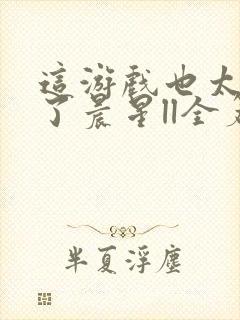 這游戲也太
了晨星||全
半夏浮塵